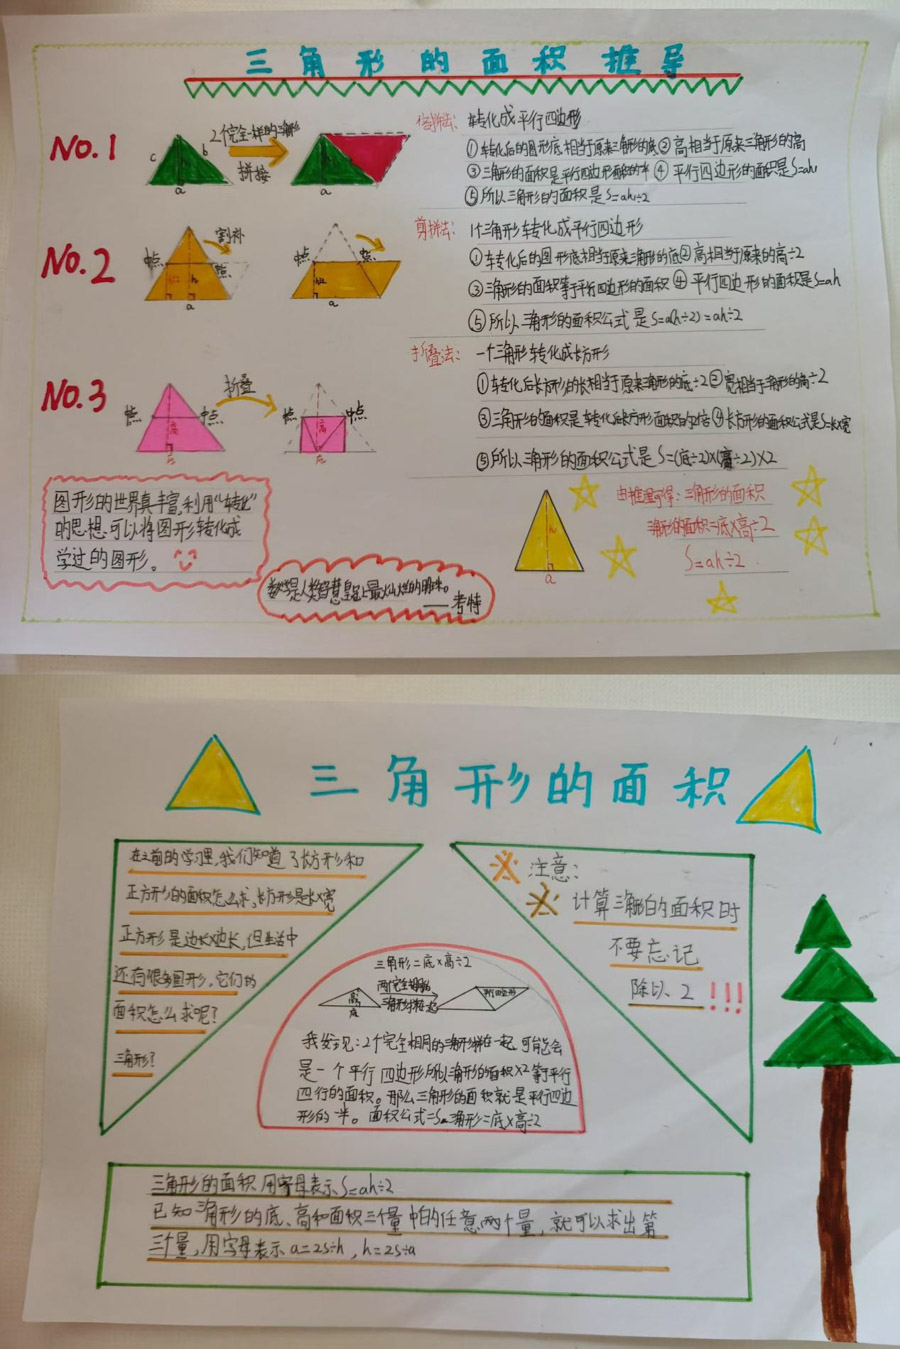 三角形的面积推导
NO.1
c
b
a
2个完全一样的三角形
拼接
a
转化成平行四边形
①转化后的图形底相当于原来三角形的底②高相当于原来三角形的高
③三角形的面积是平行四边形面积的半④平行四边形的面积是S=ah
⑤所以三角形的面积是S=ah÷2
NO.2
中点
割补
h
a
中点
a
剪拼法:
1个三角形转化成平行四边形
①转化后的图形底相当于原来三角形的底②高相当于原来的高÷2
③三角形的面积等于平行四边形的面积④平行四边形的面积是S=ah
⑤所以三角形的面积公式是S=a(h÷2)=ah÷2
NO.3
中点
中点
高
底
折叠
中点
中点
高
底
折叠法:
一个三角形转化成长方形
①转化后长方形的长相当于原来三角形的底÷2②宽相当于三角形的高÷2
③三角形的面积是转化后长方形面积的2倍④长方形的面积公式是S=长×宽
⑤所以三角形的面积公式是S=(底÷2)×(高÷2)×2
图形的世界真丰富,利用“转化”
的思想可以将图形转化成
学过的图形。
数学是人类智慧皇冠上最灿烂的明珠。
——考特
h
a
由推理可得:三角形的面积
三角形的面积=底×高÷2
S=ah÷2
三角形的面积
在之前的学习里,我们知道了长方形和
正方形的面积怎么求,长方形是长×宽
正方形是边长×边长,但生活中
还有很多图形,它们的
面积怎么求呢?
三角形?
※注意:
※计算三角形的面积时
不要忘记
除以2!!!
三角形=底×高÷2
高
底
两个完全相同的
三角形拼在一起
平行四边形
我发现:2个完全相同的三角形拼在一起,可能会
是一个平行四边形所以三角形的面积×2等于平行
四行的面积。那么三角形的面积就是平行四边
形的一半。面积公式=S三角形=底×高÷2
三角形的面积用字母表示S=ah÷2
已知三角形的底、高和面积三个量中的任意两个量,就可以求出第
三个量,用字母表示a=2S÷h,h=2S÷a